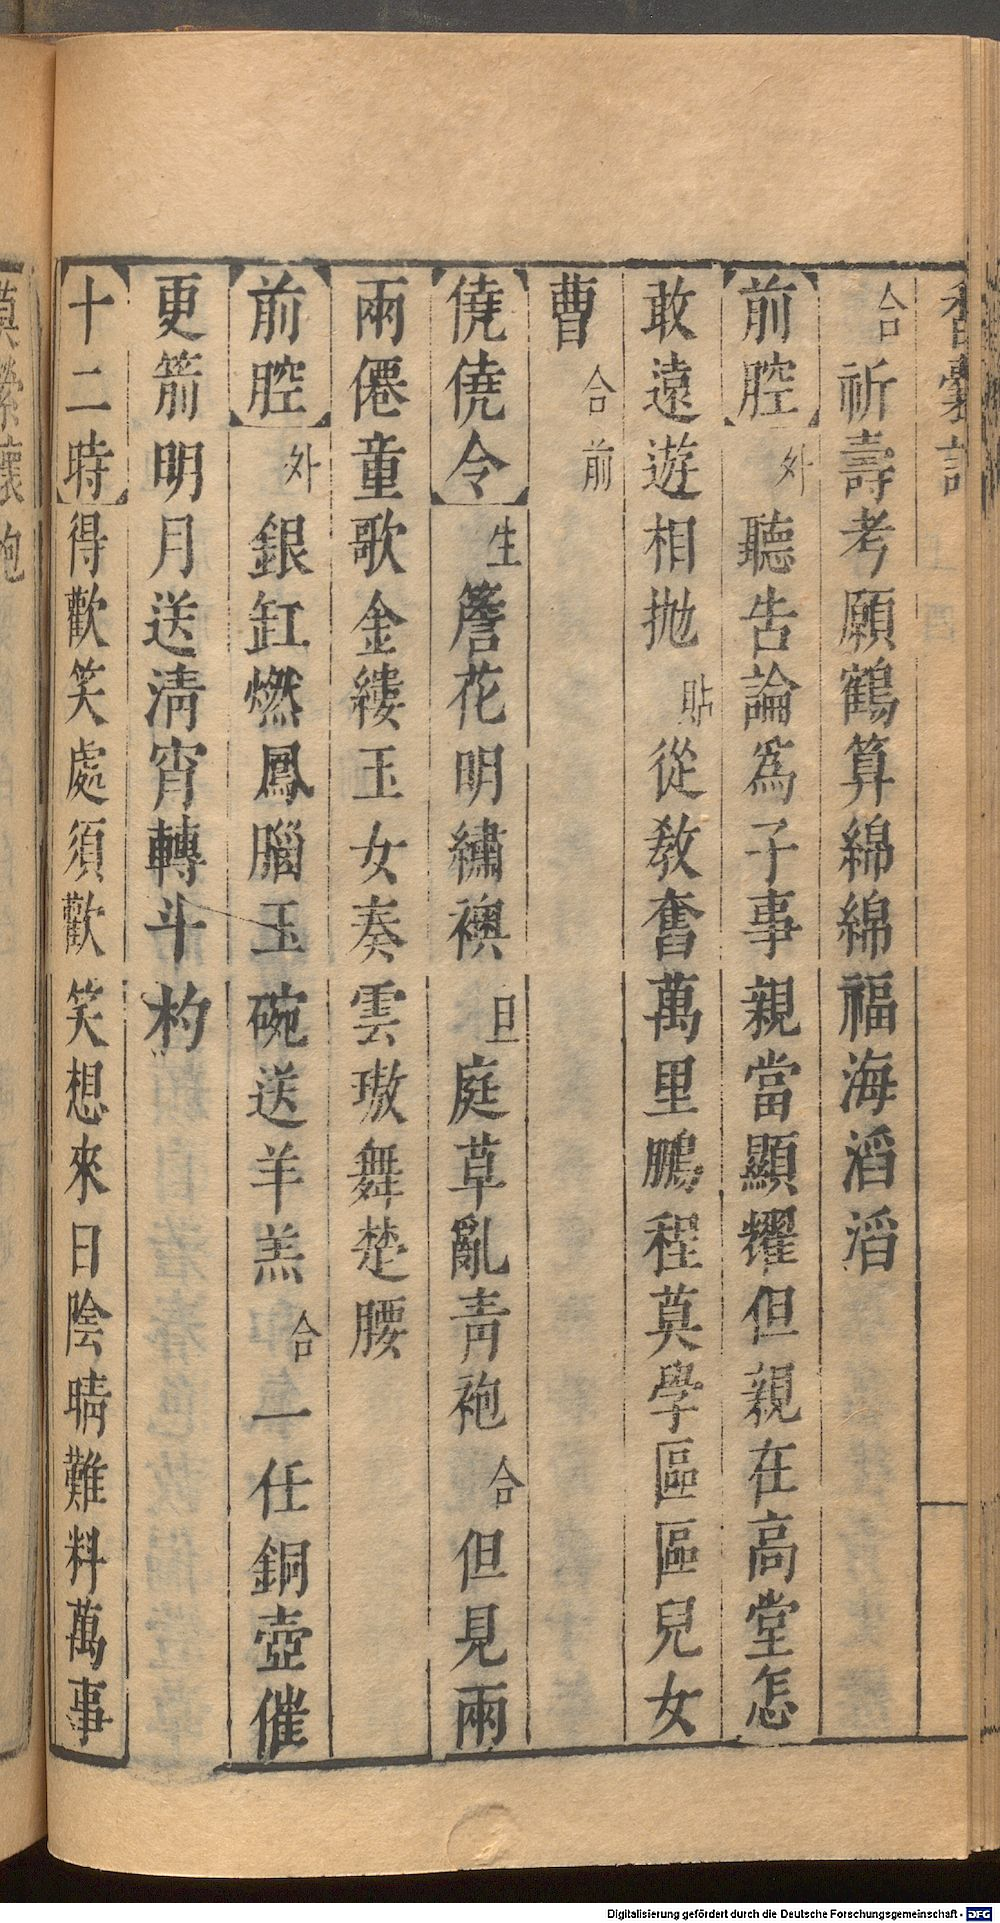 香囊記
合祈壽考願鶴算綿綿福海滔滔
【前腔】外聽告論爲子事親當顯耀但親在高堂怎
敢遠遊相拋貼從敎奮萬里鵬程莫學區區兒女
曹合前
【僥僥令】生簷花明繡襖旦庭草亂靑袍合但見兩
兩僊童歌金縷玉女奏雲璈舞楚腰
【前腔】外銀缸燃鳳腦玉碗送羊羔合一任銅壺催
更箭明月送淸宵轉斗杓
【十二時】得歡笑處須歡笑想來日陰晴難料萬事
Digitalisierung gefördert durch die Deutsche Forschungsgemeinschaft - DFG